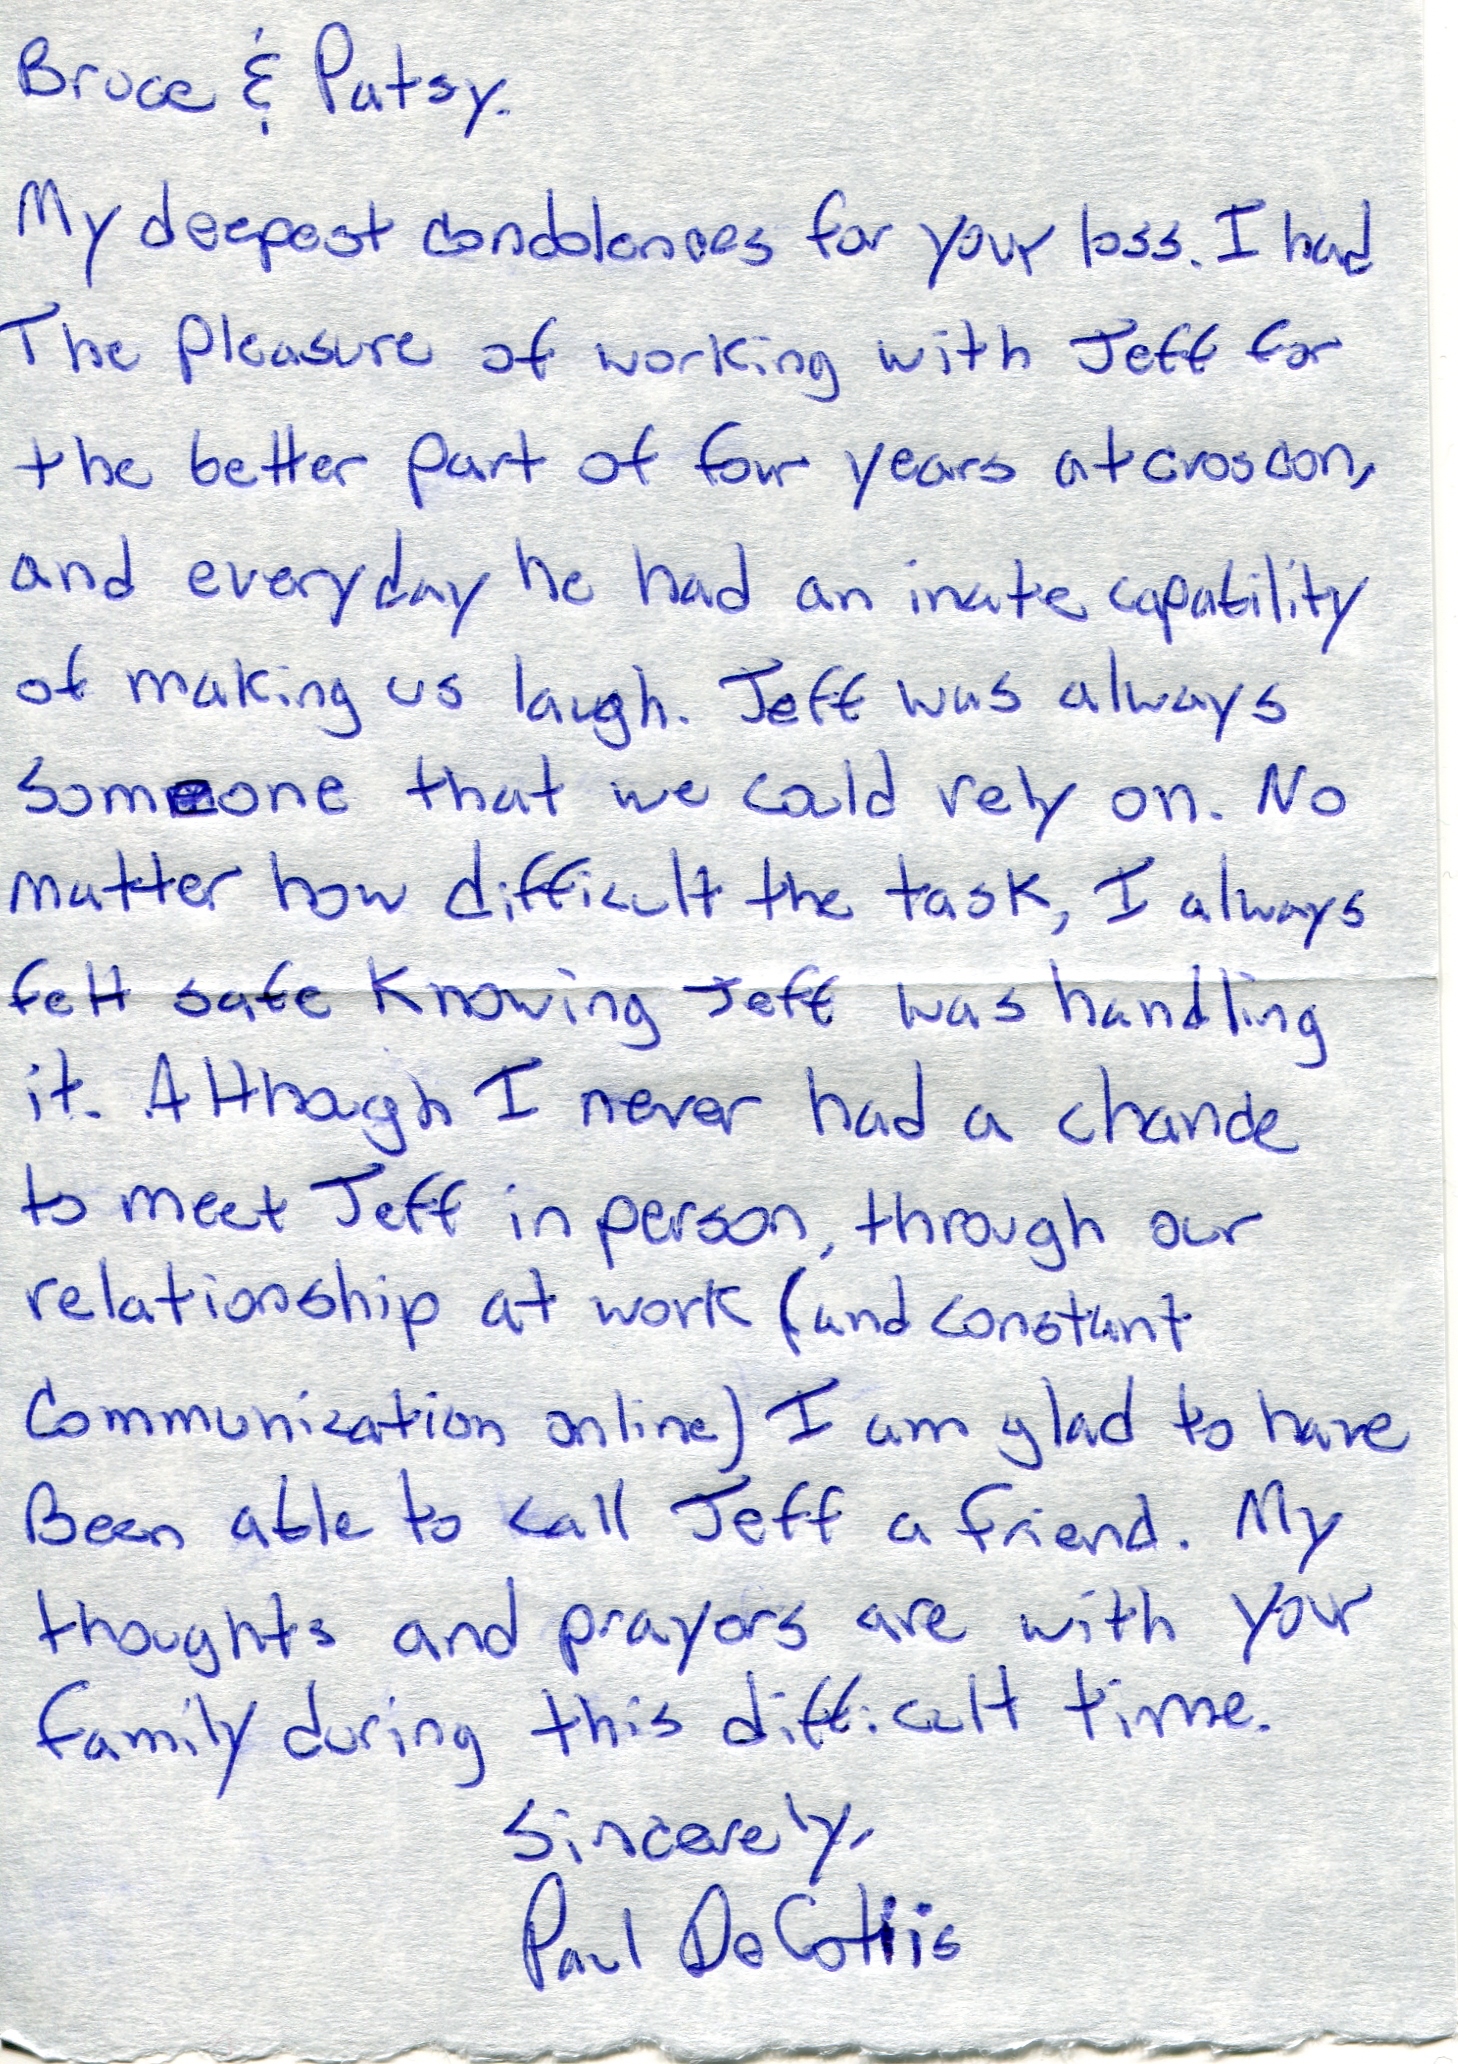 Bruce & Patsy.
My deepest condolences for your loss. I had
The Pleasure of working with Jeff for
the better part of four years at croscon,
and everyday he had an inate capability
of making us laugh. Jeff was always
someone that we could rely on. No
matter how difficult the task, I always
felt safe knowing Jeff was handling
it. Although I never had a chance
to meet Jeff in person, through our
relationship at work (and constant
Communication online) I am glad to have
Been able to call Jeff a friend. My
thoughts and prayers are with your
family during this difficult time.
Sincerely,
Paul DeCottiis